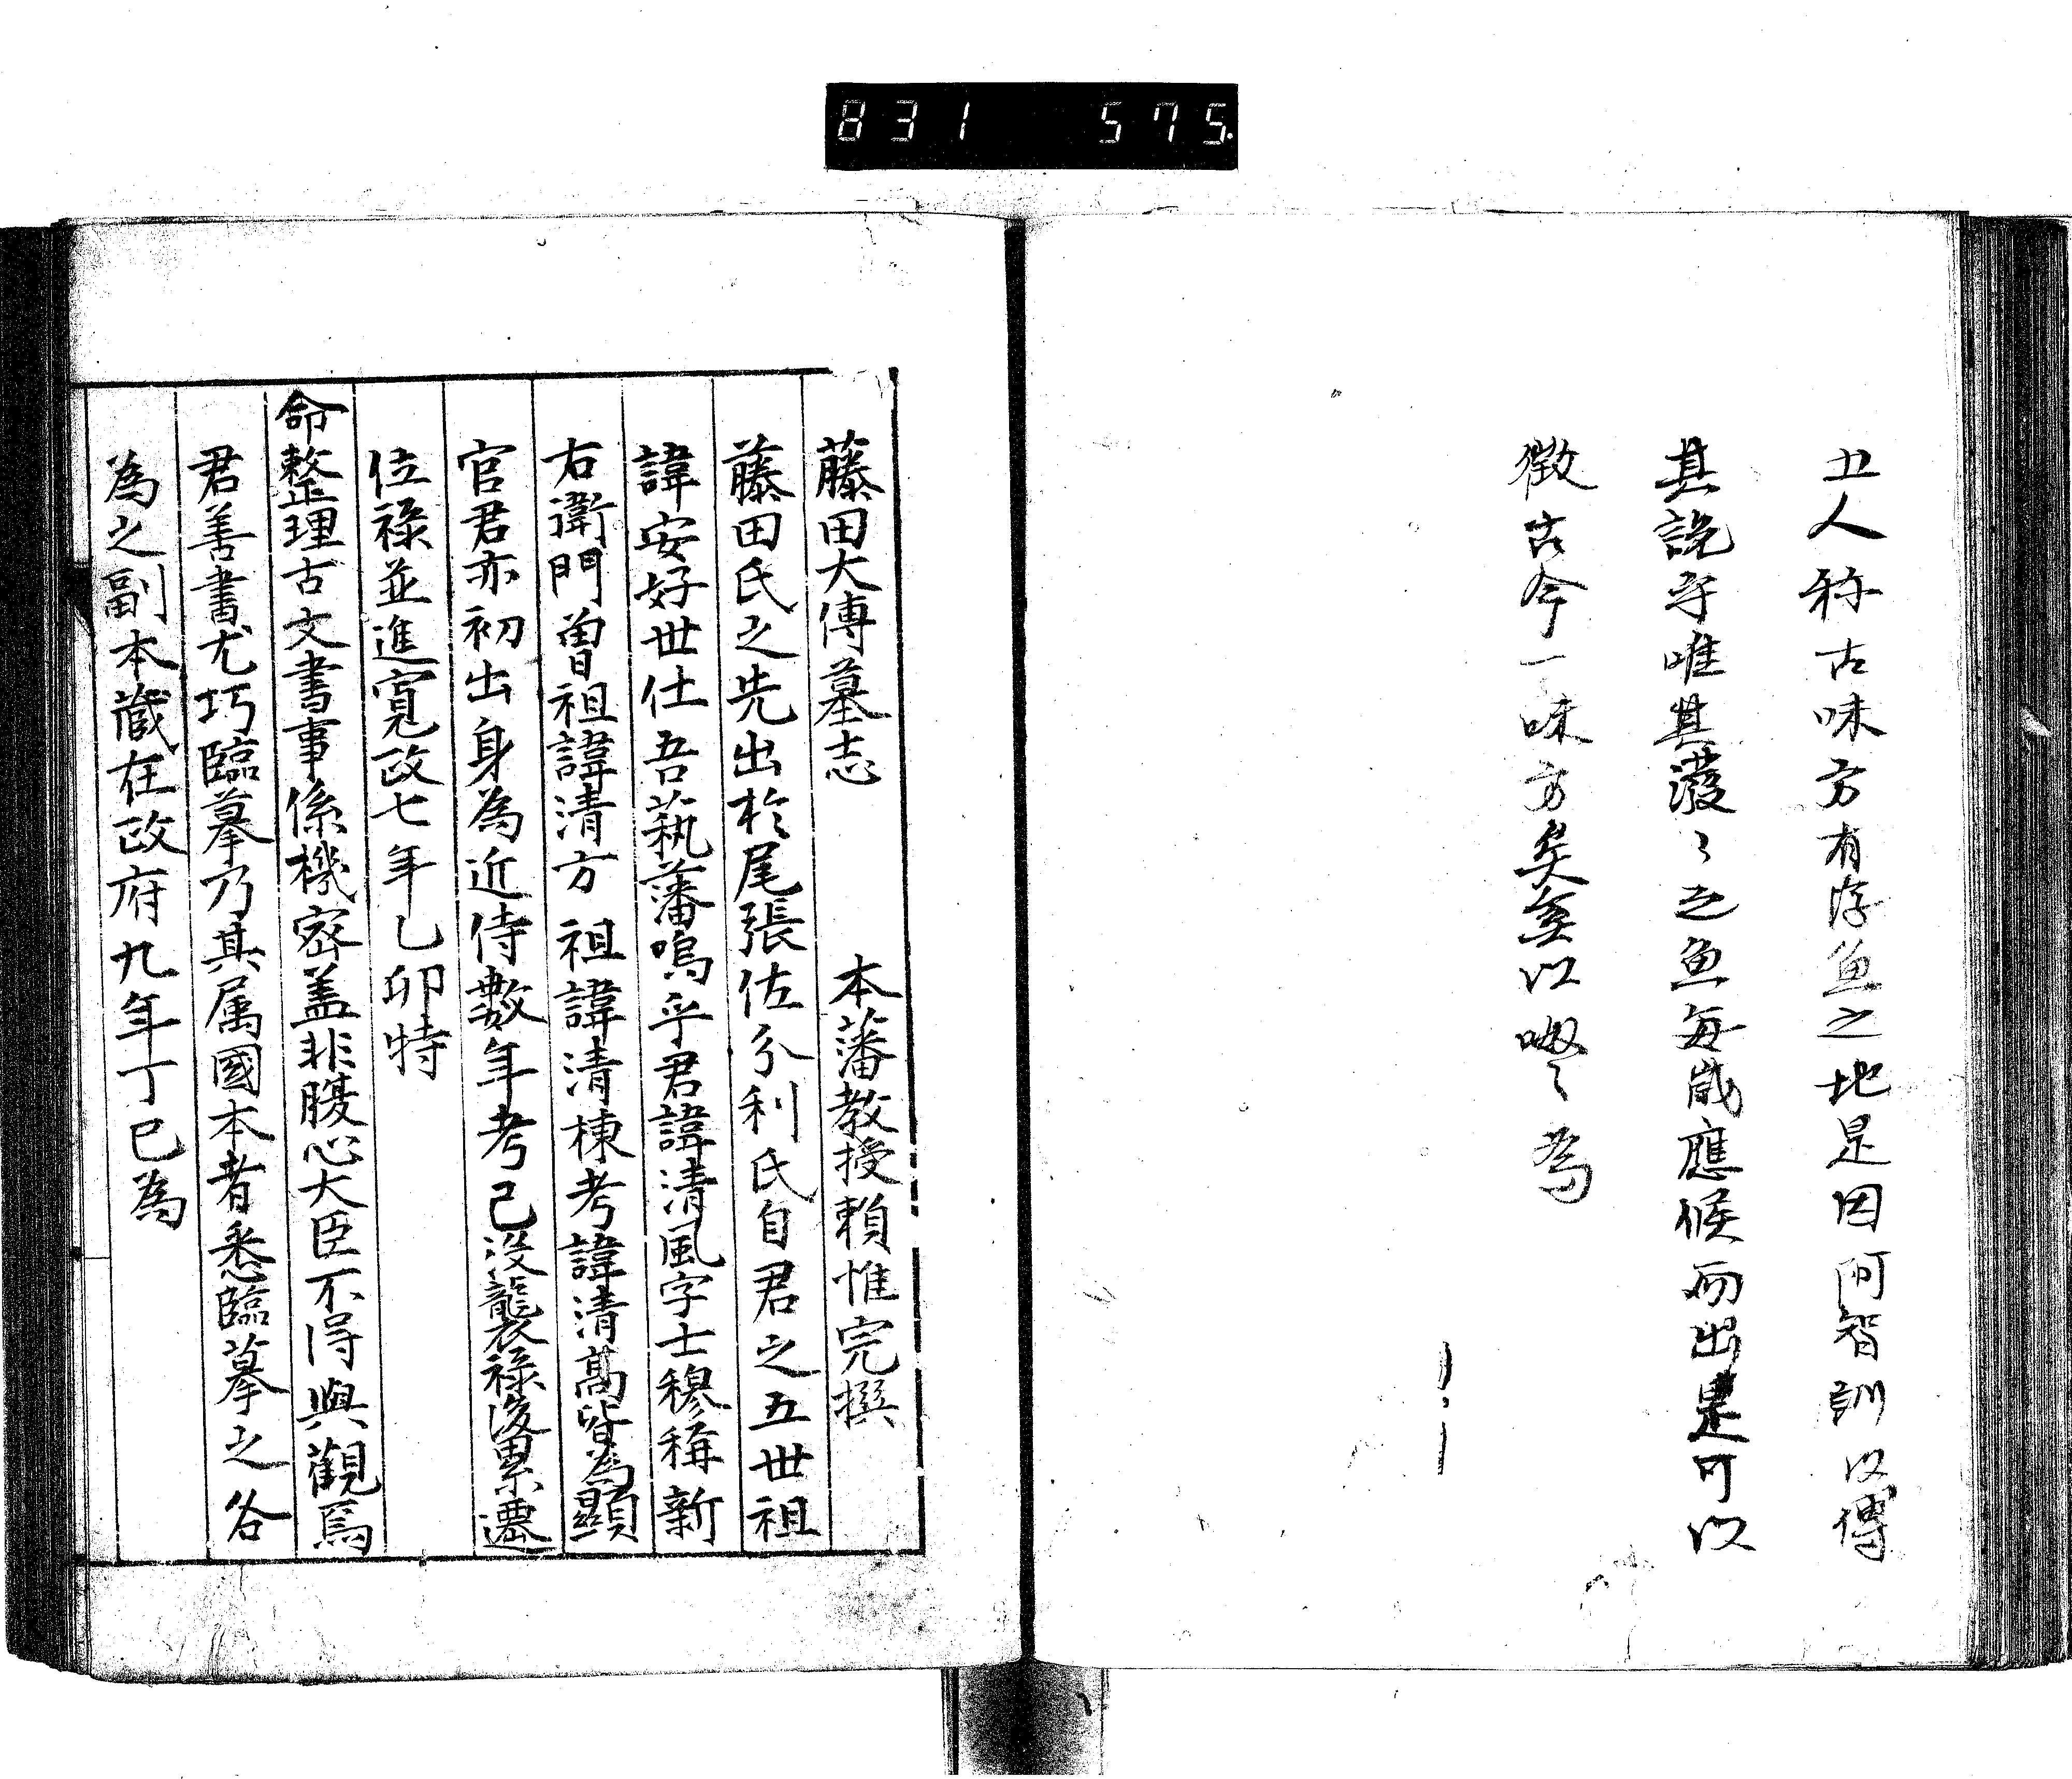 831 575
丑人称古味方有浮魚之地是因阿智訓以傳
其説乎唯其潑〻之魚每歳應候而出是可以
徴古今一味方矣
藤田大傅墓志 本藩教授賴惟完撰
藤田氏之先出於尾張佐分利氏自君之五世祖
諱安好世仕吾藝藩嗚乎君諱清風字士穆稱新
右衛門曽祖諱清方祖諱清棟考諱清髙皆為顯
官君亦初出身為近侍數年考已没襲祿後累遷
位祿並進寛政七年乙卯特
命整理古文書事係機密盖非腹心大臣不得與觀焉
君善書尤巧臨摹乃其属國本者悉臨摹之各
為之副本藏在政府九年丁巳為